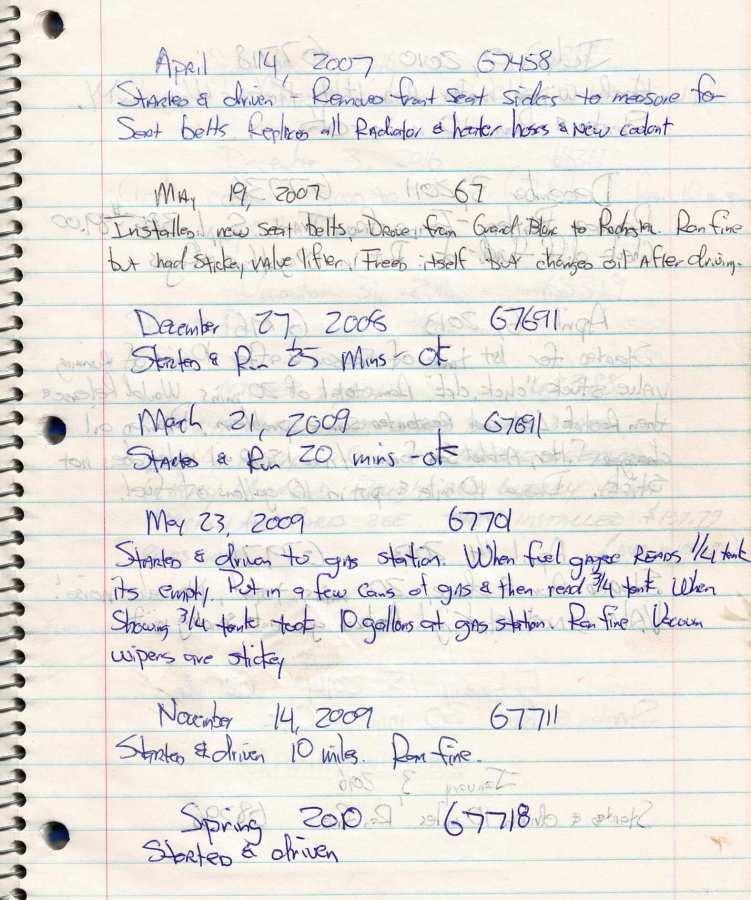 April 14, 2007 67458
Started & driven - Removed front seat sides to measure for
Seat belts Replaced all Radiator & heater hoses & New coolant
May 19, 2007 67
Installed new seat belts, Drove from Grand Blanc to Rochester. Ran fine
but had stickey valve lifter. Freed itself but changed oil After driving.
December 27, 2008 67691
Started & Run 25 Mins - ok
March 21, 2009 67691
Started & Run 20 mins - ok
May 23, 2009 67701
Started & driven to gas station. When fuel gauge READS 1/4 tank
its empty. Put in a few cans of gas & then read 3/4 tank. When
Showing 3/4 tank took 10 gallons at gas station. Ran fine. Vacuum
wipers are stickey
November 14, 2009 67711
Started & driven 10 miles. Ran fine.
Spring 2010 67718
Started & driven